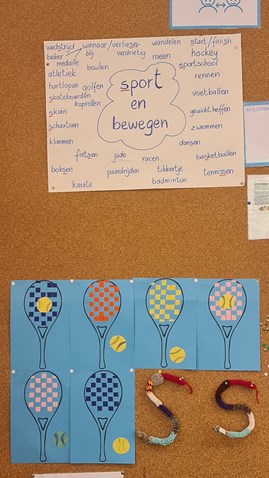 wedstrijd winnaar/verlies wandelen start/finish
beker blij verdrietig roeien hockey
medaille bowlen sportschool
atletiek rennen
hardlopen golfen
skateboarden voetballen
koprollen
skiën gewichtheffen
schaatsen zwemmen
klimmen dansen
sport
en
bewegen
fietsen judo racen basketballen
boksen paardrijden tikkertje tennissen
karate badminton